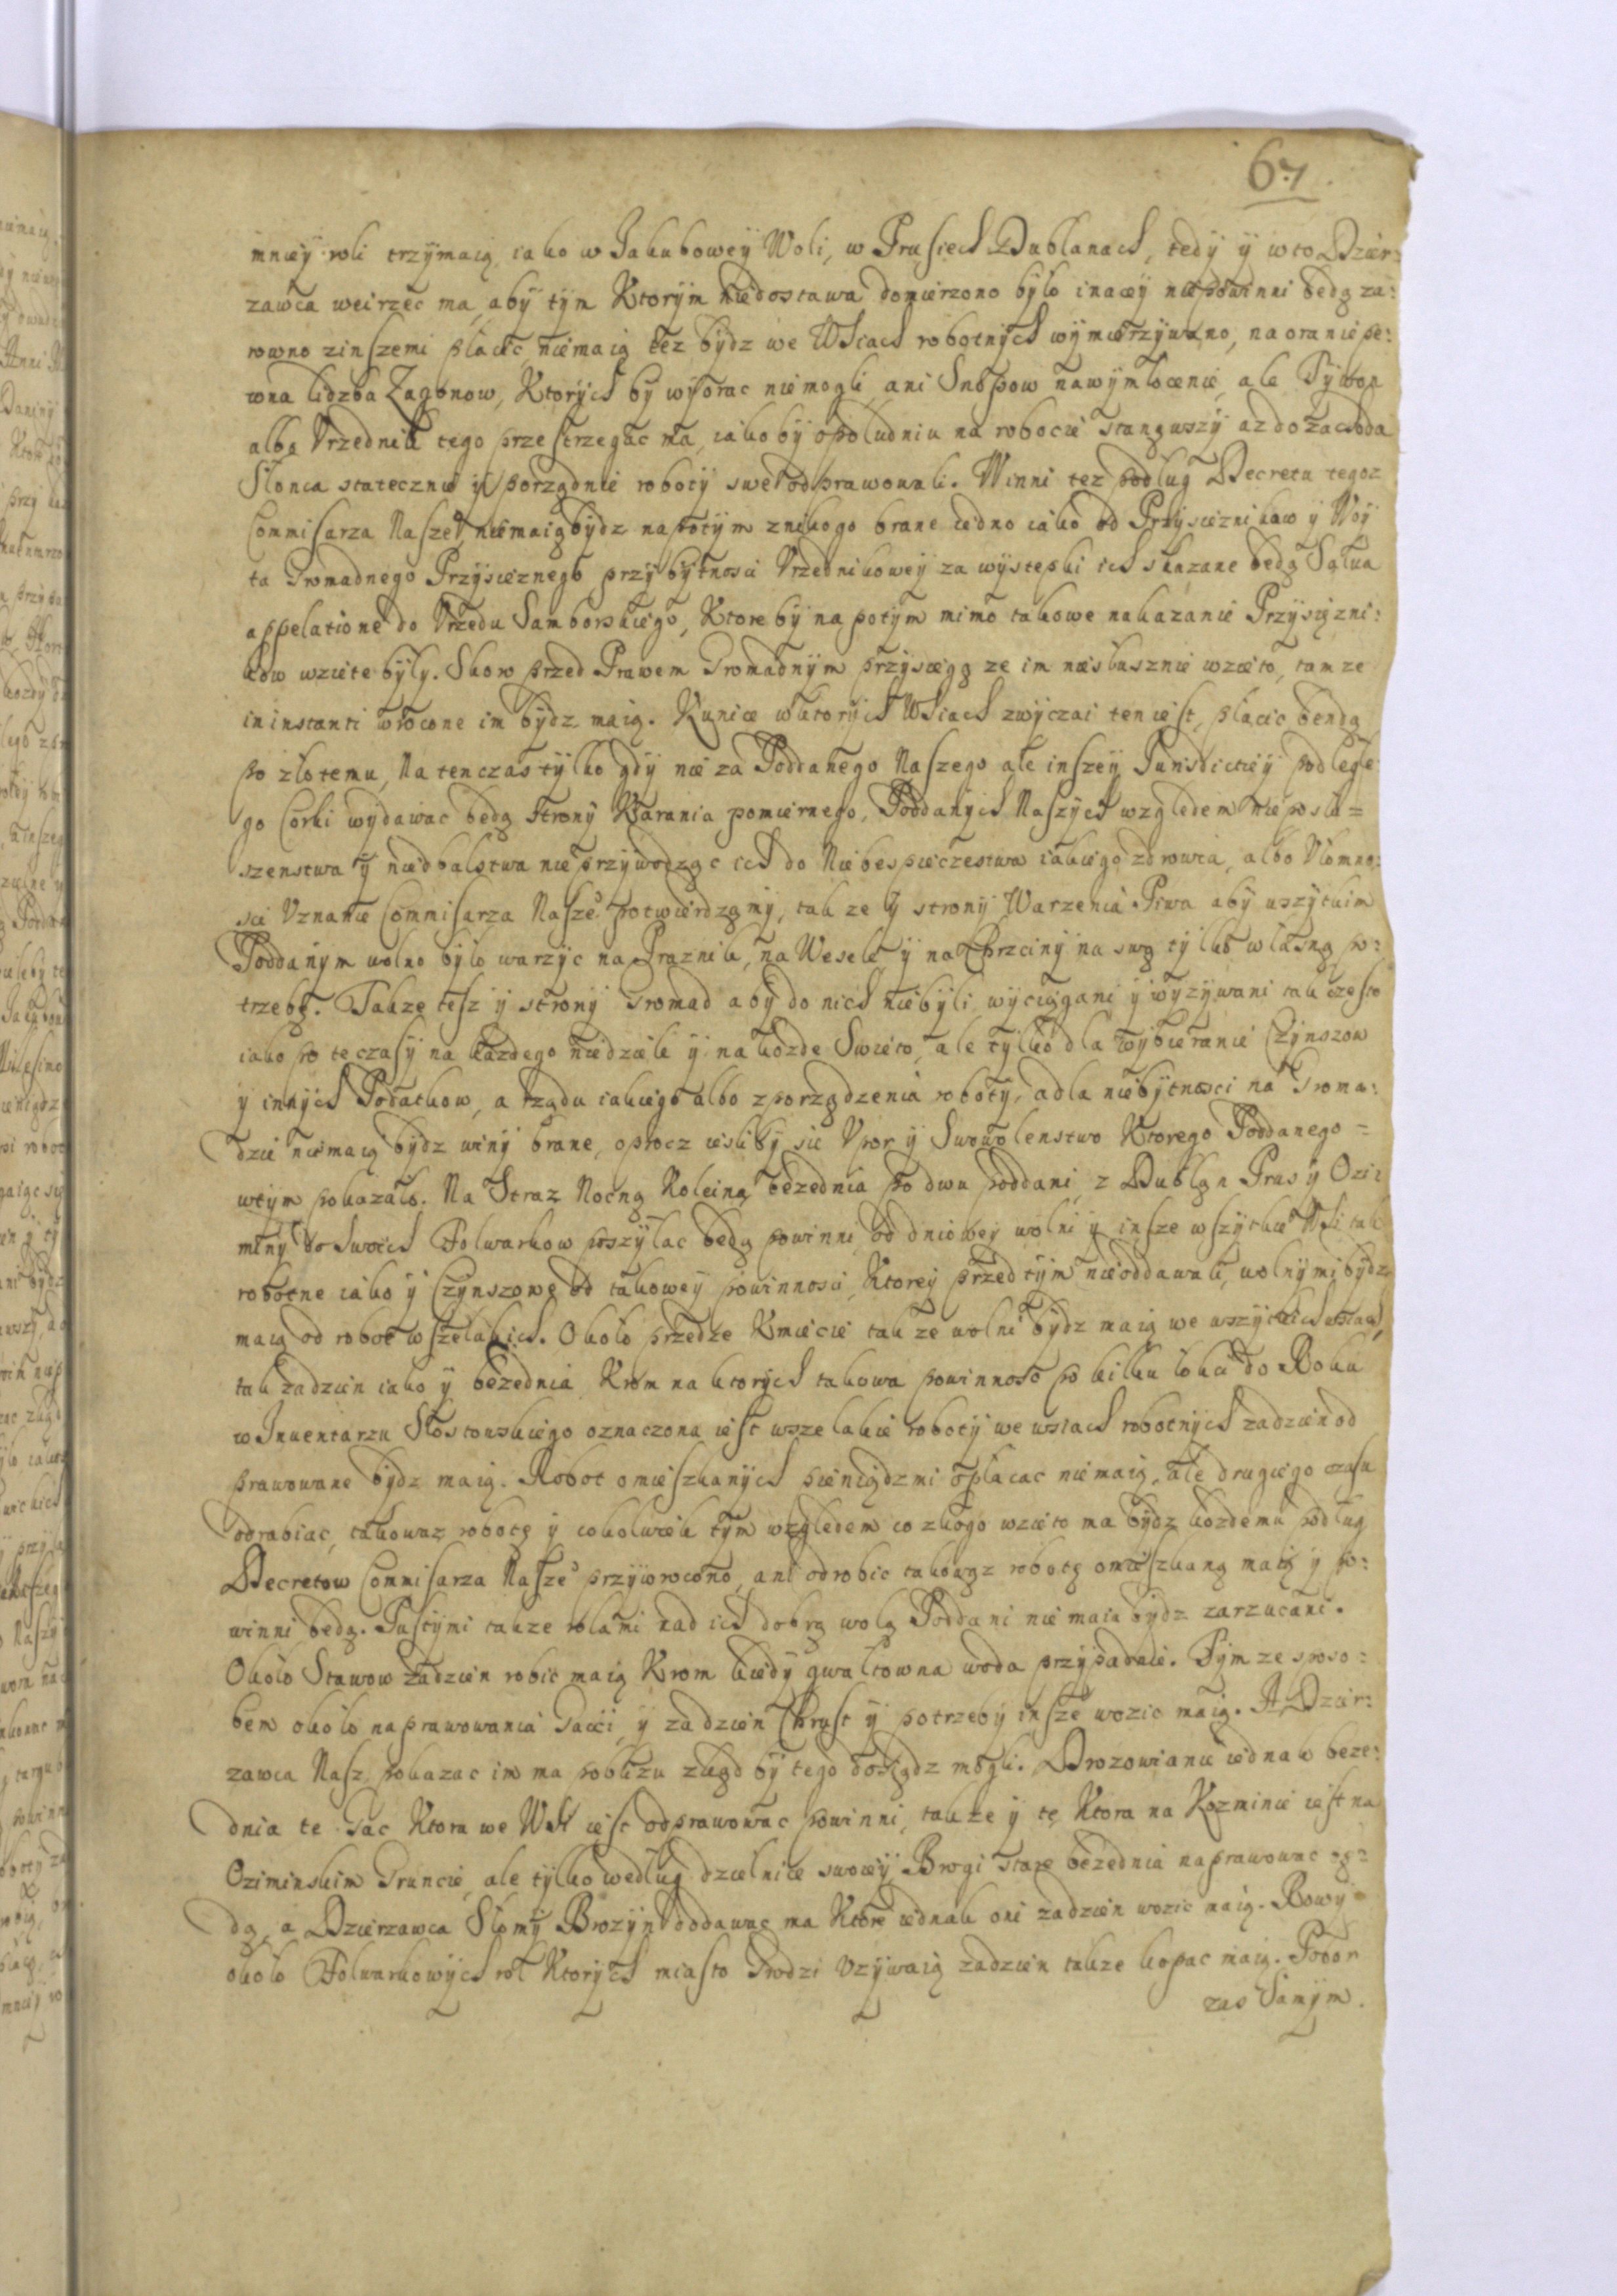 67
mnieÿ roli trzÿmaią iako w Jakuboweÿ Woli, w Prusiech Dublanach, tedÿ ÿ w to Dzier:
zawca weirzec ma, abÿ tÿm Ktorÿm niedostawa domierzono bÿlo inaceÿ niepowinni bedą za:
rowno zinszemi placic, niemaią tez bÿdz we Wsiach robotnÿch wÿmierzÿwano, na oranie pe:
wna lidzba Zagonow, Ktorÿch bÿ wÿorac niemogli, ani Snopow na wÿmlocenie, ale Tÿwon
albo Vrzednik tego przestrzegac ma, iako bÿ opoludniu na robocie stanąwszÿ az do zachoda
Slonca statecznie ÿ porządnie robotÿ swe odprawowali. Winni tez podlug Decretu tegoz
Commisarza Nasze° niemaią bÿdz napotÿm znikogo brane iedno iako od Przÿsieznikow ÿ Woÿ
ta Gromadnego Przÿsieznego przÿ bÿtnosci Vrzednikoweÿ za wÿstepki ich skazane bedą Salua
appelatione do Vrzedu Samborskiego, Ktore bÿ na potÿm mimo takowe nakazanie Przÿsięzni:
kow wziete bÿlÿ. Skoro przed Prawem Gromadnÿm przÿsięgą ze im niesłusznie wzieto, tamze
in instanti wrocone im bÿdz maią. Kunice w ktorÿch Wsiach zwÿczai ten iest, placic bendą
po zlotemu, Na tenczas tÿlko gdÿ nie za Poddanego Naszego ale inszeÿ Jurisdictieÿ podlegle
go Corki wÿdawac bedą stronÿ Karania pomiernego, Poddanÿch Naszÿch wzgledem nieposlu=
szenstwa ÿ niedbalstwa nie przÿwodząc ich do Niebespieczestwa iakiego zdrowia, albo Vlomno:
sci Vznanie Commisarza Nasze° potwierdzamÿ, tak ze ÿ stronÿ Warzenia Piwa abÿ wszÿtkim
Poddanÿm wolno bÿlo warzÿc na Praznik, na Wesele ÿ na Chrzcinÿ na swą tÿlko wlasną po:
trzebę. Takze tesz ÿ stronÿ Gromad abÿ do nich niebÿli wÿciągani ÿ wÿzÿwani tak czesto
iako po te czasÿ na kazdego niedziele ÿ na kozde Swieto, ale tÿlko dla wÿbieranie Czÿnszow
ÿ innÿch Podatkow, a rządu iakiego albo zporządzenia robotÿ, a dla niebÿtnosci na Groma:
dzie niemaią bÿdz winÿ brane, oprocz iesli bÿ sie Vpor ÿ Swowolenstwo Ktorego Poddanego =
wtÿm pokazalo. Na Straz Nocną Koleiną bezednia po dwu poddani, z Dublan Prus ÿ Ozi:
minÿ do swoich Folwarkow poszÿlac bedą powinni, od dnioweÿ wolni ÿ insze wszÿtkie Wsi tak
robotne iako ÿ Czÿnszowe od takoweÿ powinnosci, Ktoreÿ przed tÿm nieoddawali, wolnÿmi bÿdz
maią od robot wszelakich. Okolo przedze Kmiecie takze wolni bÿdz maią we wszÿtkich wsiach
tak zadzien iako ÿ bezednia, Krom na ktorÿch takowa powinnosc po kilku lokci do Roku
w Inuentarzu Slostowskiego oznaczona iest wszelakie robotÿ we wsiach robotnÿch zadzien od
prawowane bÿdz maią. Robot omieszkanÿch pieniądzmi oplacac niemaią, ale drugiego czasu
odrabiac, takowąz robotę ÿ cokolwiek tÿm wzgledem co zkogo wzieto ma bÿdz kozdemu podlug
Decretow Commisarza Nasze° przÿwrocono, ani odrobic takowąz robotę omieszkaną maią ÿ po:
winni bedą. Pustÿmi takze rolami nad ich dobrą wolą Poddani nie maia bÿdz zarzucani.
Okolo Stawow zadzien robic maią Krom kiedÿ gwaltowna woda przÿpadnie. Tÿmze sposo:
bem okolo naprawowania Gacei, ÿ za dzien Chrust ÿ potrzebÿ insze wozic maią. A Dzier:
zawca Nasz pokazac im ma poblizu zkąd bÿ tego dosiądz mogli. Drozowianie iednak beze:
dnia te Gac Ktora we Wsi iest odprawowac powinni, takze ÿ tę Ktora na Kozminie iest na
Oziminskim Gruncie, ale tÿlko według dzielnice swoieÿ, Brogi stare bezednia naprawowac bę:
dą, a Dzierzawca Slomÿ Brozÿn oddawac ma Ktore iednak oni zadzien wozic maią. Rowÿ
okolo Folwarkowÿch rol Ktorÿch miasto Grodzi vzÿwaią zadzien takze kopac maią. Pobor
zas Samÿm.